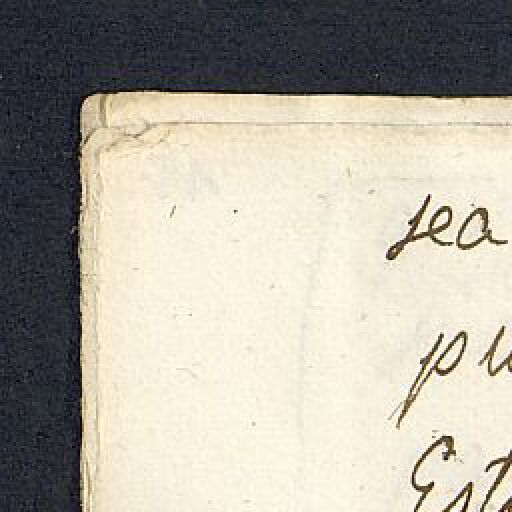 sea
pu
Est